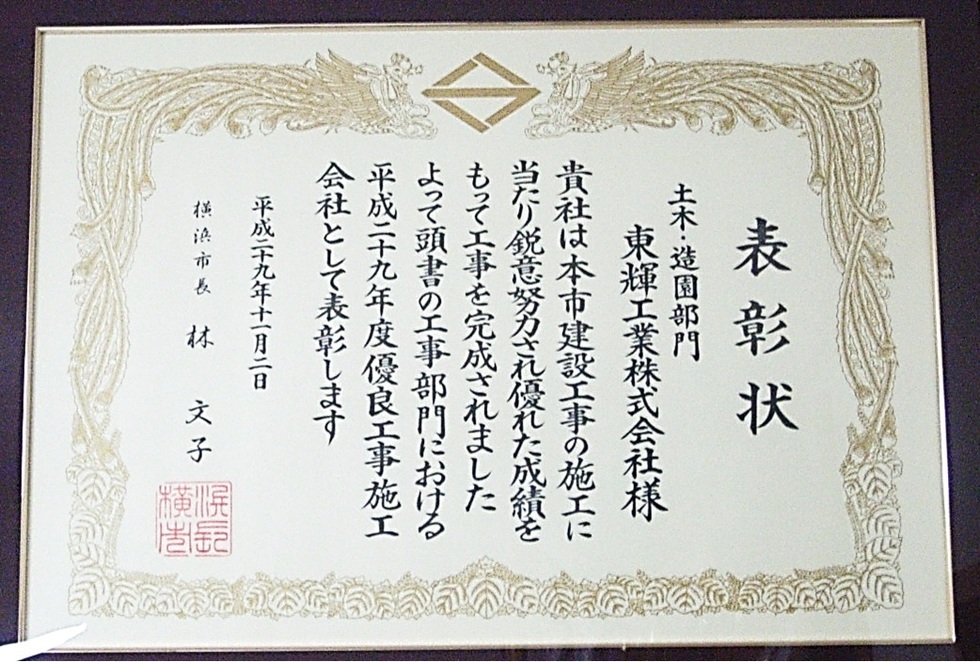 表彰状
土木・造園部門
東輝工業株式会社様
貴社は本市建設工事の施工に
当たり鋭意努力され優れた成績を
もって工事を完成されました
よって頭書の工事部門における
平成二十九年度優良工事施工
会社として表彰します
平成二十九年十一月二日
横浜市長 林 文子